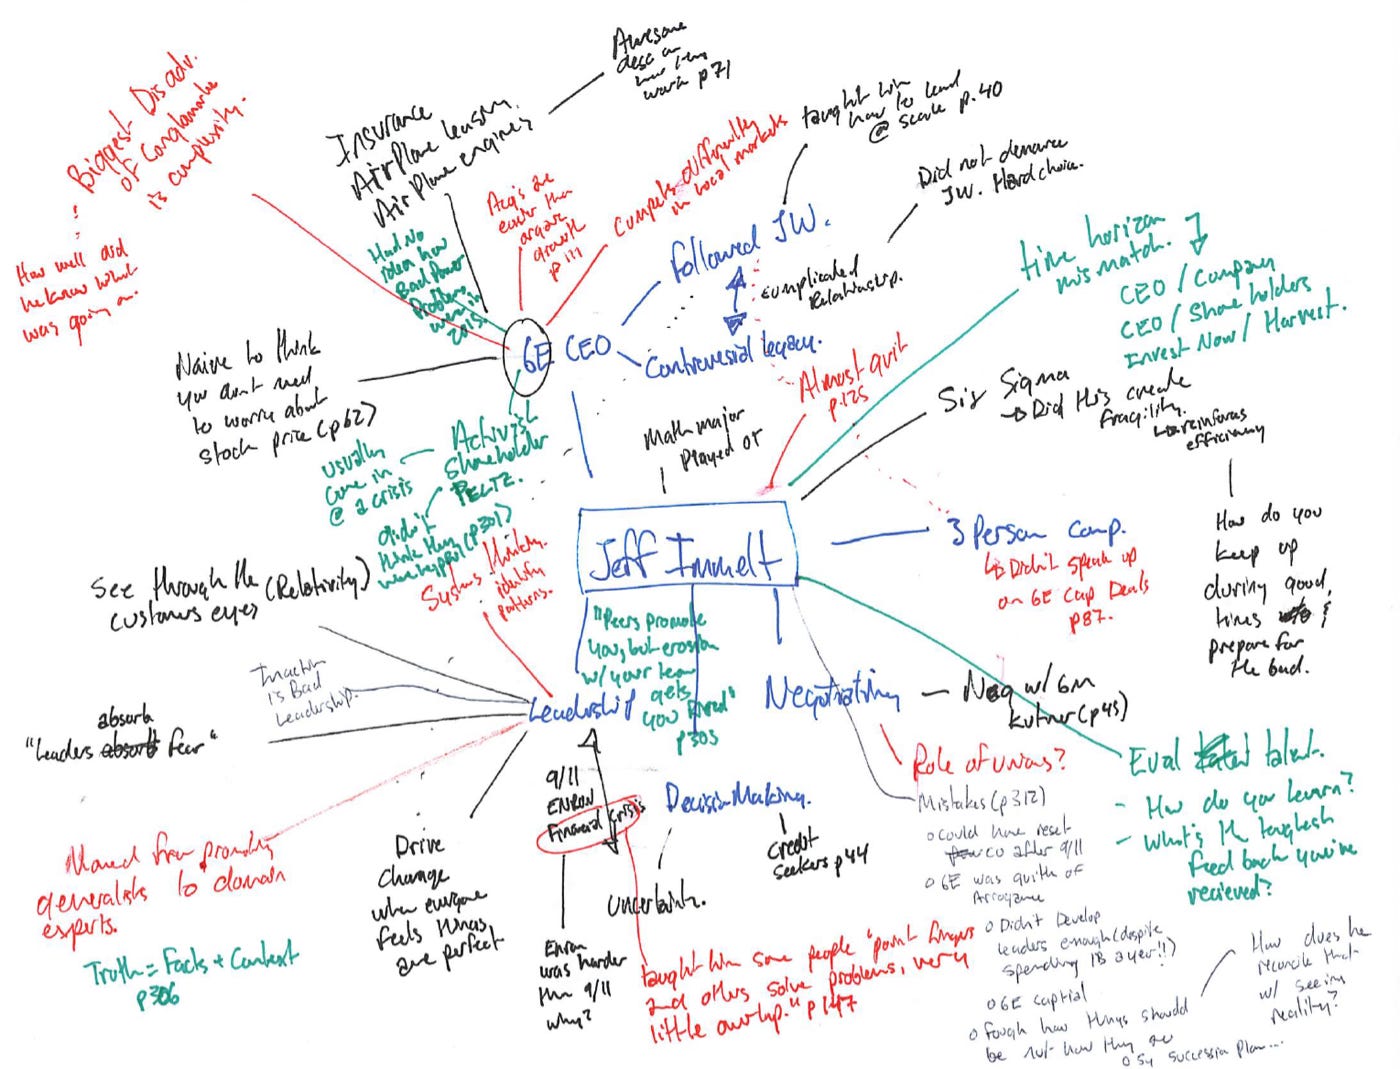 Awesome
desc on
how they
work p71
Biggest Disadv.
of Conglomarte
is complexity.
How well did
he know what
was going on.
Insurance
Airplane leasing.
Airplane engines
Had No
idea how
Bad Power
Problems
were in
2015.
Acq's are
easier than
organic
growth
p111
Compete differently
in local markets
taught him
how to lead
@ scale p.40
Did not denounce
JW. Hard choice.
followed JW.
complicated
Relationship.
Controversial legacy.
time horizon
mismatch.
CEO / Company
CEO / Share holders
Invest Now / Harvest.
GE CEO
Naive to think
you don't need
to worry about
stock price (p62)
Almost quit
p.125
Six Sigma
Did this create
fragility.
reinforces
efficiency
Math major
Played OT
Activist
Shareholder
PELTZ.
usually
come in
@ a crisis
didn't
think they
were hyper (p301)
How do you
keep up
during good
times &
prepare for
the bad.
Jeff Immelt
3 Person comp.
Didn't speak up
on GE Cap Deals
p87.
Systems thinking.
identify
patterns.
See through the (Relativity)
customers eyes
"Peers promote
you, but erosion
w/ your team
gets
you fired"
p303
Inaction
is Bad
Leadership.
Leadership
Negotiating
Neg w/ GM
Kutner (p45)
absorb
"Leaders absorb fear"
Role of unions?
Eval talent.
- How do you learn?
- What's the toughest
feed back you've
recieved?
9/11
ENRON
Financial crisis
Decision Making.
Credit
Seekers p44
Uncertainty.
Mistakes (p312)
could have reset
co after 9/11
GE was guilty of
Arrogance
Didn't Develop
leaders enough (despite
spending 1B a year!!)
GE captial
fough how things should
be not how they are
Succession plan...
How does he
reconcile that
w/ seeing
reality?
Moved from promoting
generalists to domain
experts.
Truth = Facts + Context
p306
Drive
Change
when everyone
feels things
are perfect
Enron
was harder
than 9/11
why?
taught him some people "point fingers
and others solve problems, very
little overlap." p147